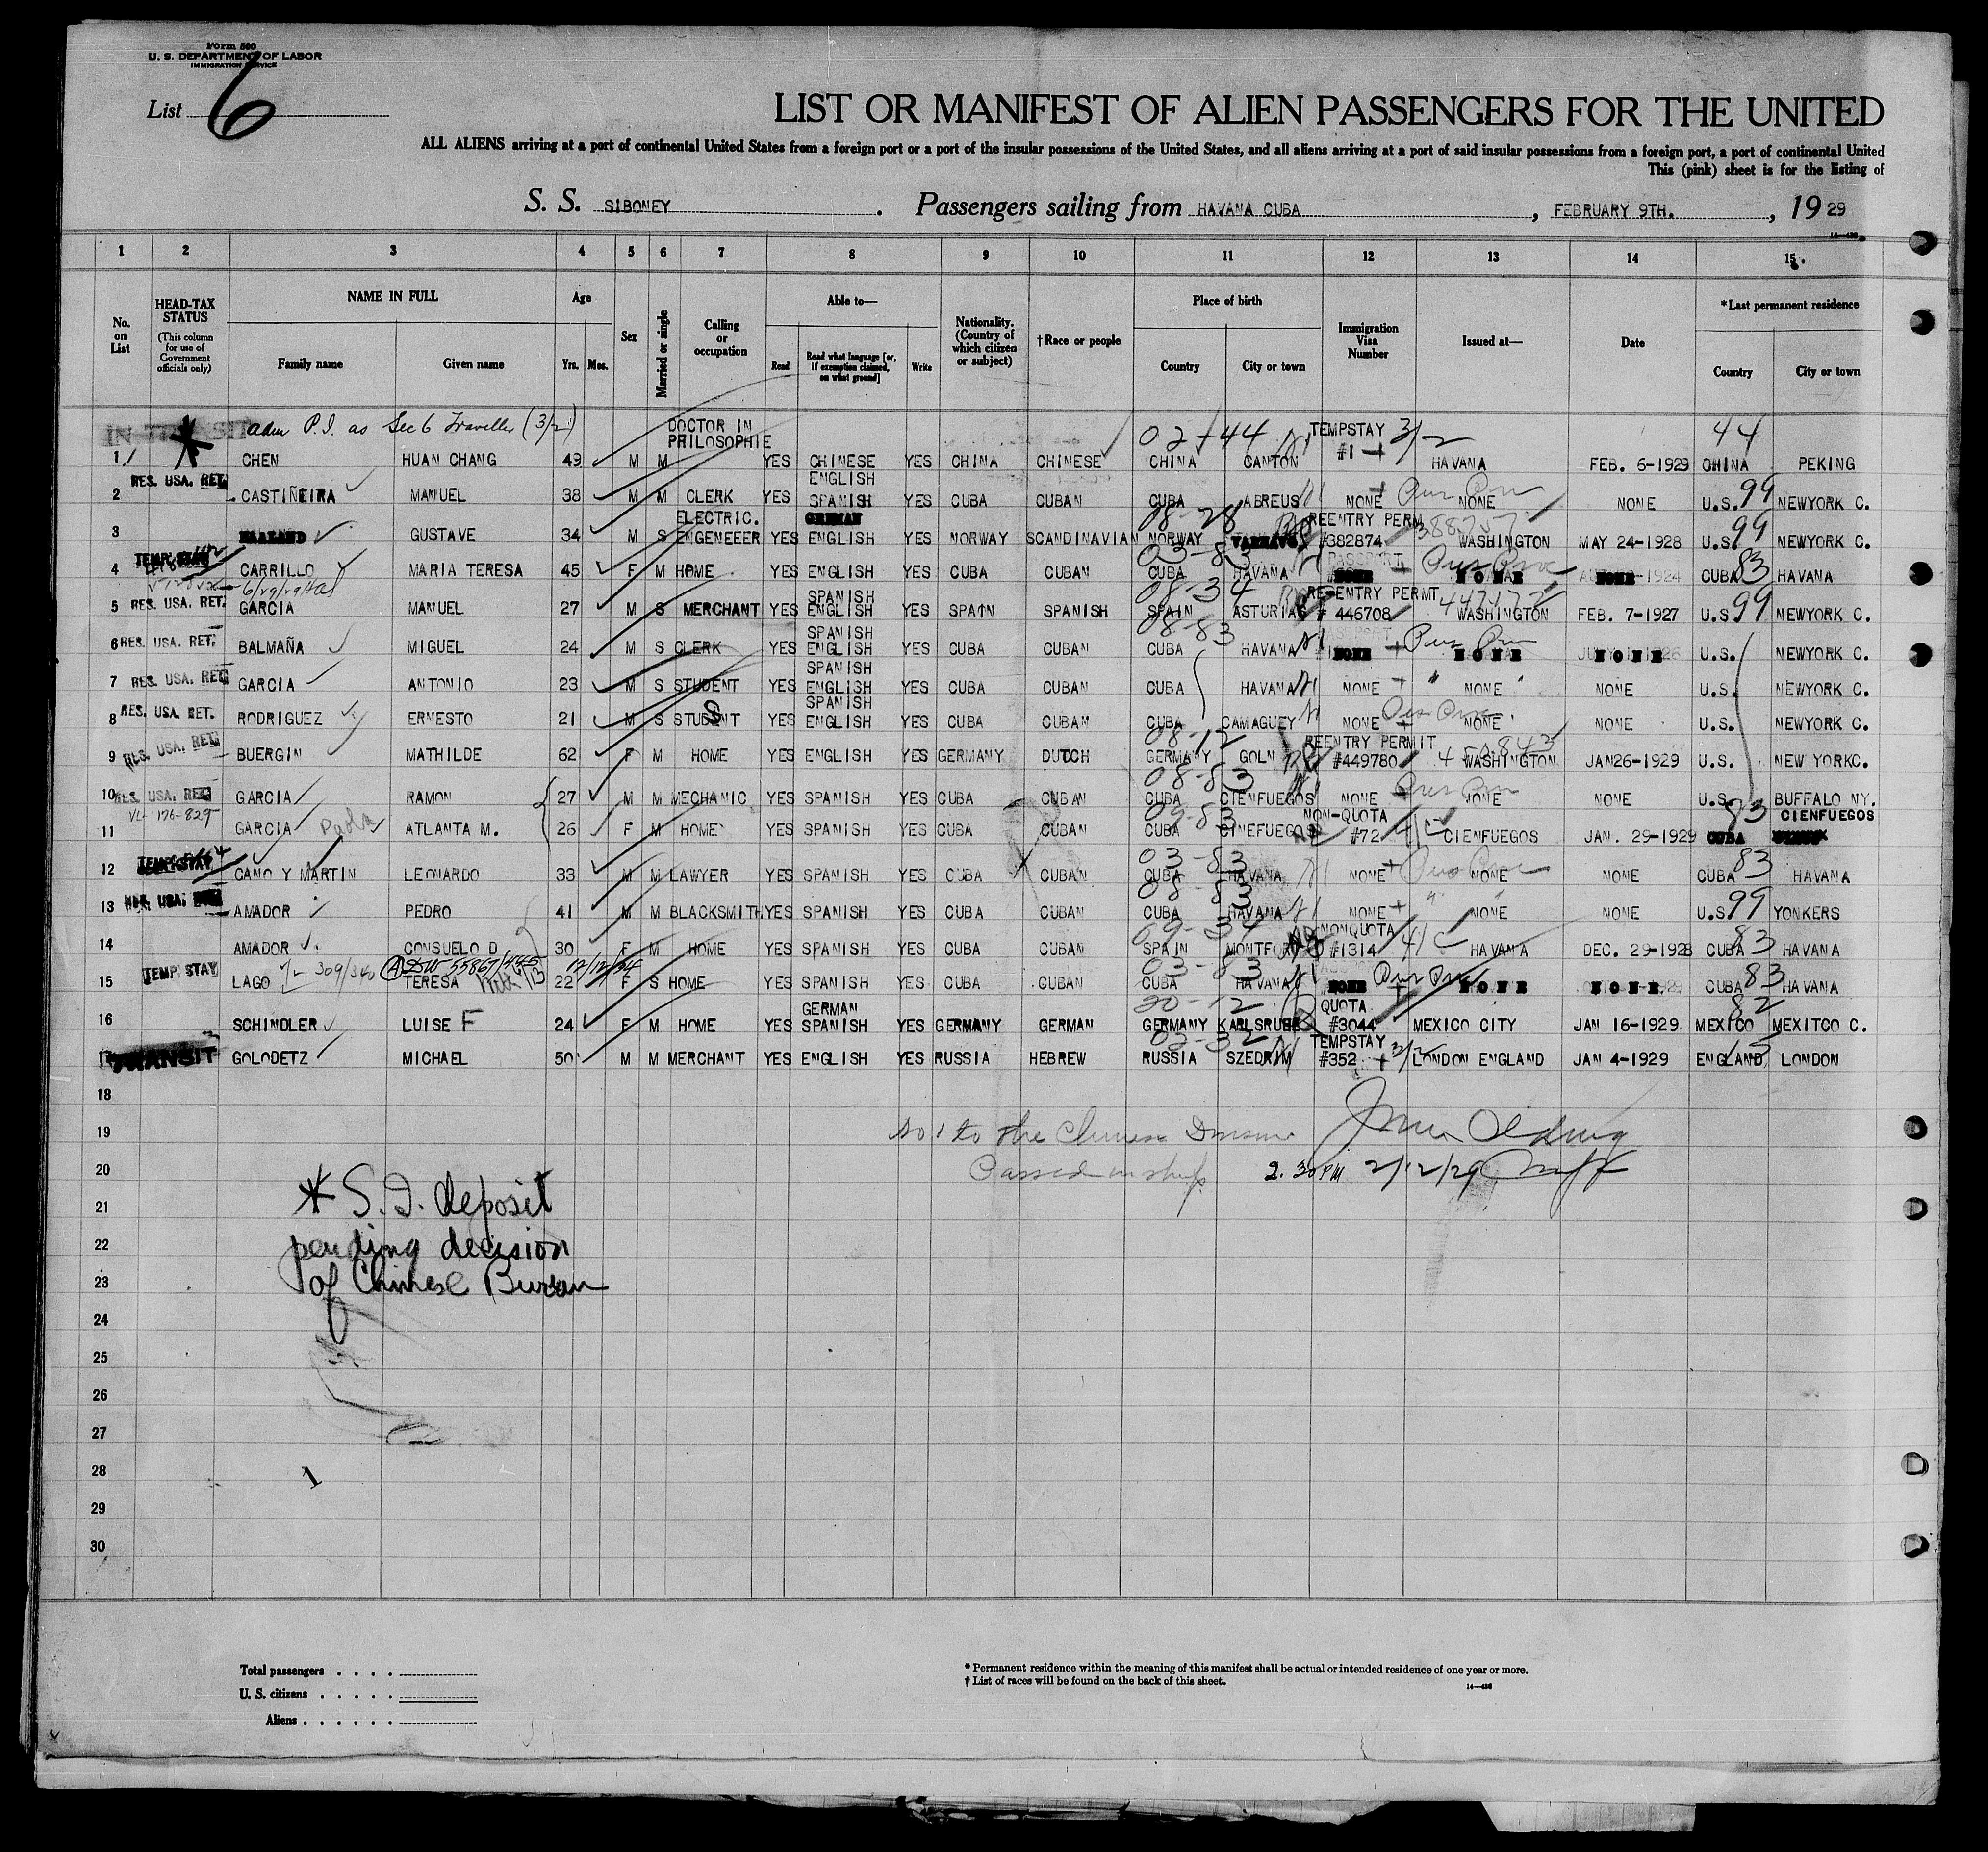 Form 500
U. S. DEPARTMENT OF LABOR
IMMIGRATION SERVICE
List 6
LIST OR MANIFEST OF ALIEN PASSENGERS FOR THE UNITED
ALL ALIENS arriving at a port of continental United States from a foreign port or a port of the insular possessions of the United States, and all aliens arriving at a port of said insular possessions from a foreign port, a port of continental United
This (pink) sheet is for the listing of
S. S. SIBONEY. Passengers sailing from HAVANA CUBA, FEBRUARY 9TH., 19 29
1 2 3 4 5 6 7 8 9 10 11 12 13 14 15
No. on List
HEAD-TAX STATUS (This column for use of Government officials only)
NAME IN FULL
Family name Given name
Age
Yrs. Mos.
Sex
Married or single
Calling or occupation
Able to—
Read Read what language [or, if exemption claimed, on what ground] Write
Nationality. (Country of which citizen or subject)
†Race or people
Place of birth
Country City or town
Immigration Visa Number
Issued at—
Date
*Last permanent residence
Country City or town
IN TRANSIT adm P.I. as Sec 6 Traveller (3/2) DOCTOR IN PHILOSOPHIE 02-44 TEMPSTAY 3/2 44
1 CHEN HUAN CHANG 49 M M YES CHINESE YES CHINA CHINESE CHINA CANTON #1 HAVANA FEB. 6-1929 CHINA PEKING
RES. USA. RET. ENGLISH
2 CASTIÑEIRA MANUEL 38 M M CLERK YES SPANISH YES CUBA CUBAN CUBA ABREUS NONE NONE NONE U.S. 99 NEWYORK C.
ELECTRIC. 08-28 REENTRY PERM 388757
3 GUSTAVE 34 M S ENGENEEER YES ENGLISH YES NORWAY SCANDINAVIAN NORWAY #382874 WASHINGTON MAY 24-1928 U.S. 99 NEWYORK C.
TEMP. STAY 03-83
4 CARRILLO MARIA TERESA 45 F M HOME YES ENGLISH YES CUBA CUBAN CUBA HAVANA NONE NONE NONE CUBA 83 HAVANA
6/29/29 SPANISH 08-34 RE-ENTRY PERMT
5 RES. USA. RET. GARCIA MANUEL 27 M S MERCHANT YES ENGLISH YES SPAIN SPANISH SPAIN ASTURIAS # 446708 WASHINGTON FEB. 7-1927 U.S 99 NEWYORK C.
SPANISH 08-83
6 RES. USA. RET. BALMAÑA MIGUEL 24 M S CLERK YES ENGLISH YES CUBA CUBAN CUBA HAVANA NONE NONE NONE U.S. NEWYORK C.
SPANISH
7 RES. USA. RET. GARCIA ANTONIO 23 M S STUDENT YES ENGLISH YES CUBA CUBAN CUBA HAVANA NONE " NONE " NONE U.S. NEWYORK C.
SPANISH
8 RES. USA. RET. RODRIGUEZ ERNESTO 21 M S STUDENT YES ENGLISH YES CUBA CUBAN CUBA CAMAGUEY NONE NONE NONE U.S. NEWYORK C.
08-12 REENTRY PERMIT
9 RES. USA. RET. BUERGIN MATHILDE 62 F M HOME YES ENGLISH YES GERMANY DUTCH GERMANY GOLN #449780 WASHINGTON JAN26-1929 U.S. NEW YORKC.
08-83
10 RES. USA. RET. GARCIA RAMON 27 M M MECHANIC YES SPANISH YES CUBA CUBAN CUBA CIENFUEGOS NONE NONE NONE U.S. BUFFALO NY.
VL 176-829 09-83 NON-QUOTA 83 CIENFUEGOS
11 GARCIA ATLANTA M. 26 F M HOME YES SPANISH YES CUBA CUBAN CUBA CINEFUEGOS #72 CIENFUEGOS JAN. 29-1929 CUBA
TEMP. STAY 03-83
12 CANO Y MARTIN LEONARDO 33 M M LAWYER YES SPANISH YES CUBA CUBAN CUBA HAVANA NONE NONE NONE CUBA 83 HAVANA
RES. USA. 08-83
13 AMADOR PEDRO 41 M M BLACKSMITH YES SPANISH YES CUBA CUBAN CUBA HAVANA NONE " NONE " NONE U.S 99 YONKERS
09-34 NONQUOTA
14 AMADOR CONSUELO D 30 F M HOME YES SPANISH YES CUBA CUBAN SPAIN #1314 HAVANA DEC. 29-1928 CUBA 83 HAVANA
TEMP. STAY 12/12/34 03-83
15 LAGO TERESA 22 F S HOME YES SPANISH YES CUBA CUBAN CUBA HAVANA NONE NONE NONE CUBA 83 HAVANA
GERMAN 30-12 QUOTA 82
16 SCHINDLER LUISE F 24 F M HOME YES SPANISH YES GERMANY GERMAN GERMANY KARLSRUHE #3044 MEXICO CITY JAN 16-1929 MEXICO MEXITCO C.
02-32 TEMPSTAY
17 TRANSIT GOLODETZ MICHAEL 50 M M MERCHANT YES ENGLISH YES RUSSIA HEBREW RUSSIA SZEDRIM #352 3/2 LONDON ENGLAND JAN 4-1929 ENGLAND LONDON
18
19 No 1 to the Chinese Division
20 Passed on ship 2.30 PM 2/12/29
* S.I. deposit
21
pending decision
22
of Chinese Bureau
23
24
25
26
27
28
29
30
Total passengers . . . .
U. S. citizens . . . . .
Aliens . . . . . .
* Permanent residence within the meaning of this manifest shall be actual or intended residence of one year or more.
† List of races will be found on the back of this sheet.
14—430